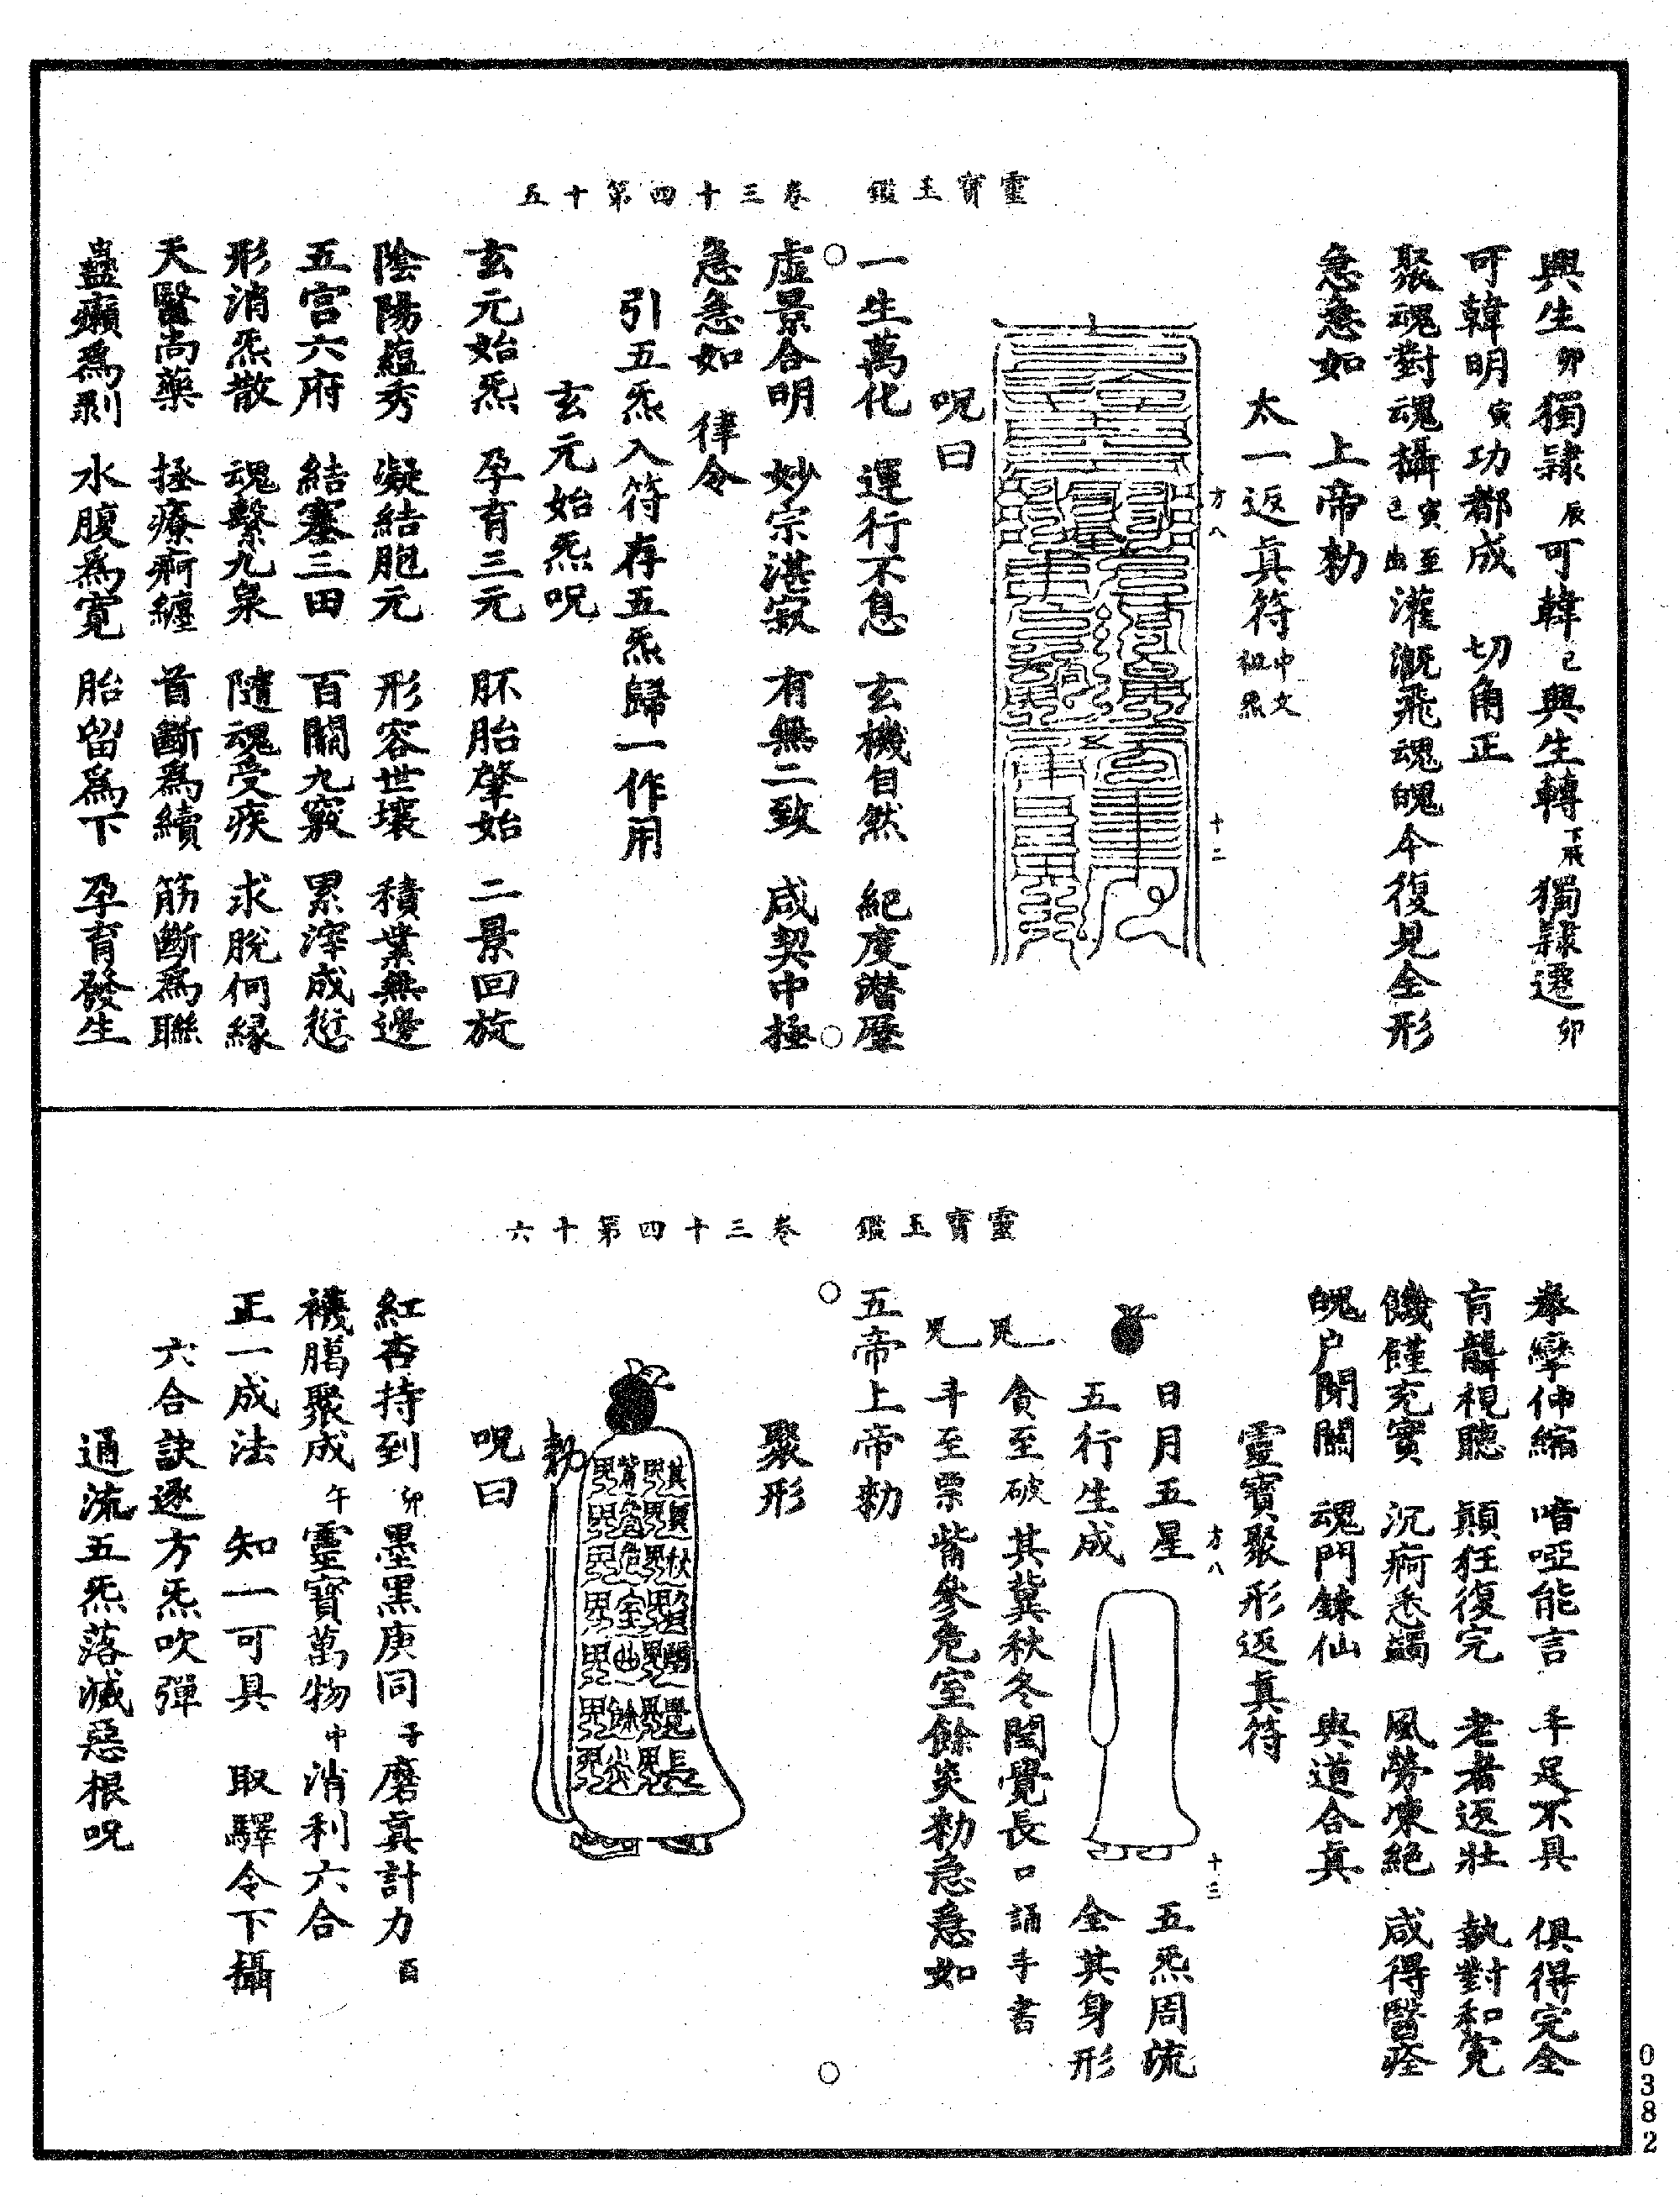 靈寶玉鑑　卷三十四第十五
興生卯獨隷辰可韓巳興生轉獨隷遷卯
可韓明寅功都成　切角正
聚魂對魂攝寅至巳出灌溉飛魂魄今復見全形
急急如　上帝勑
太一返真符中文祖炁
方八
十二
呪曰
一生萬化　運行不息　玄機自然　紀度潛歷
虛景合明　妙宗湛寂　有無二致　咸契中極
急急如　律令
引五炁入符存五炁歸一作用
玄元始炁呪
玄元始炁　孕育三元　胚胎肇始　二景回旋
陰陽蘊秀　凝結胞元　形容世壞　積業無邊
五宮六府　結塞三田　百關九竅　累滓成愆
形消炁散　魂繫九泉　隨魂受疾　求脫何緣
天醫尚藥　拯療痾纏　首斷爲續　筋斷爲聯
蠱癩爲剥　水腹爲寬　胎留爲下　孕育發生
靈寶玉鑑　卷三十四第十六
拳攣伸縮　喑啞能言　手足不具　俱得完全
盲聾視聽　顛狂復完　老者返壯　執對和寃
饑饉充實　沉痾悉蠲　風勞凍絕　咸得醫痊
魄户閉關　魂門鍊仙　與道合真
靈寶聚形返真符
方八
十三
日月五星　五炁周流
五行生成　全其身形
貪至破　其冀秋冬閏覺長口誦手書
斗至票觜參危室餘炎勑急急如
五帝上帝勑
聚形
勑
呪曰
紅杏持到卯墨黑庚同子磨真計力酉
襪臈聚成午靈寶萬物中消利六合
正一成法　知一可具　取驛令下攝
六合訣逐方炁吹彈
通流五炁落滅惡根呪
0382